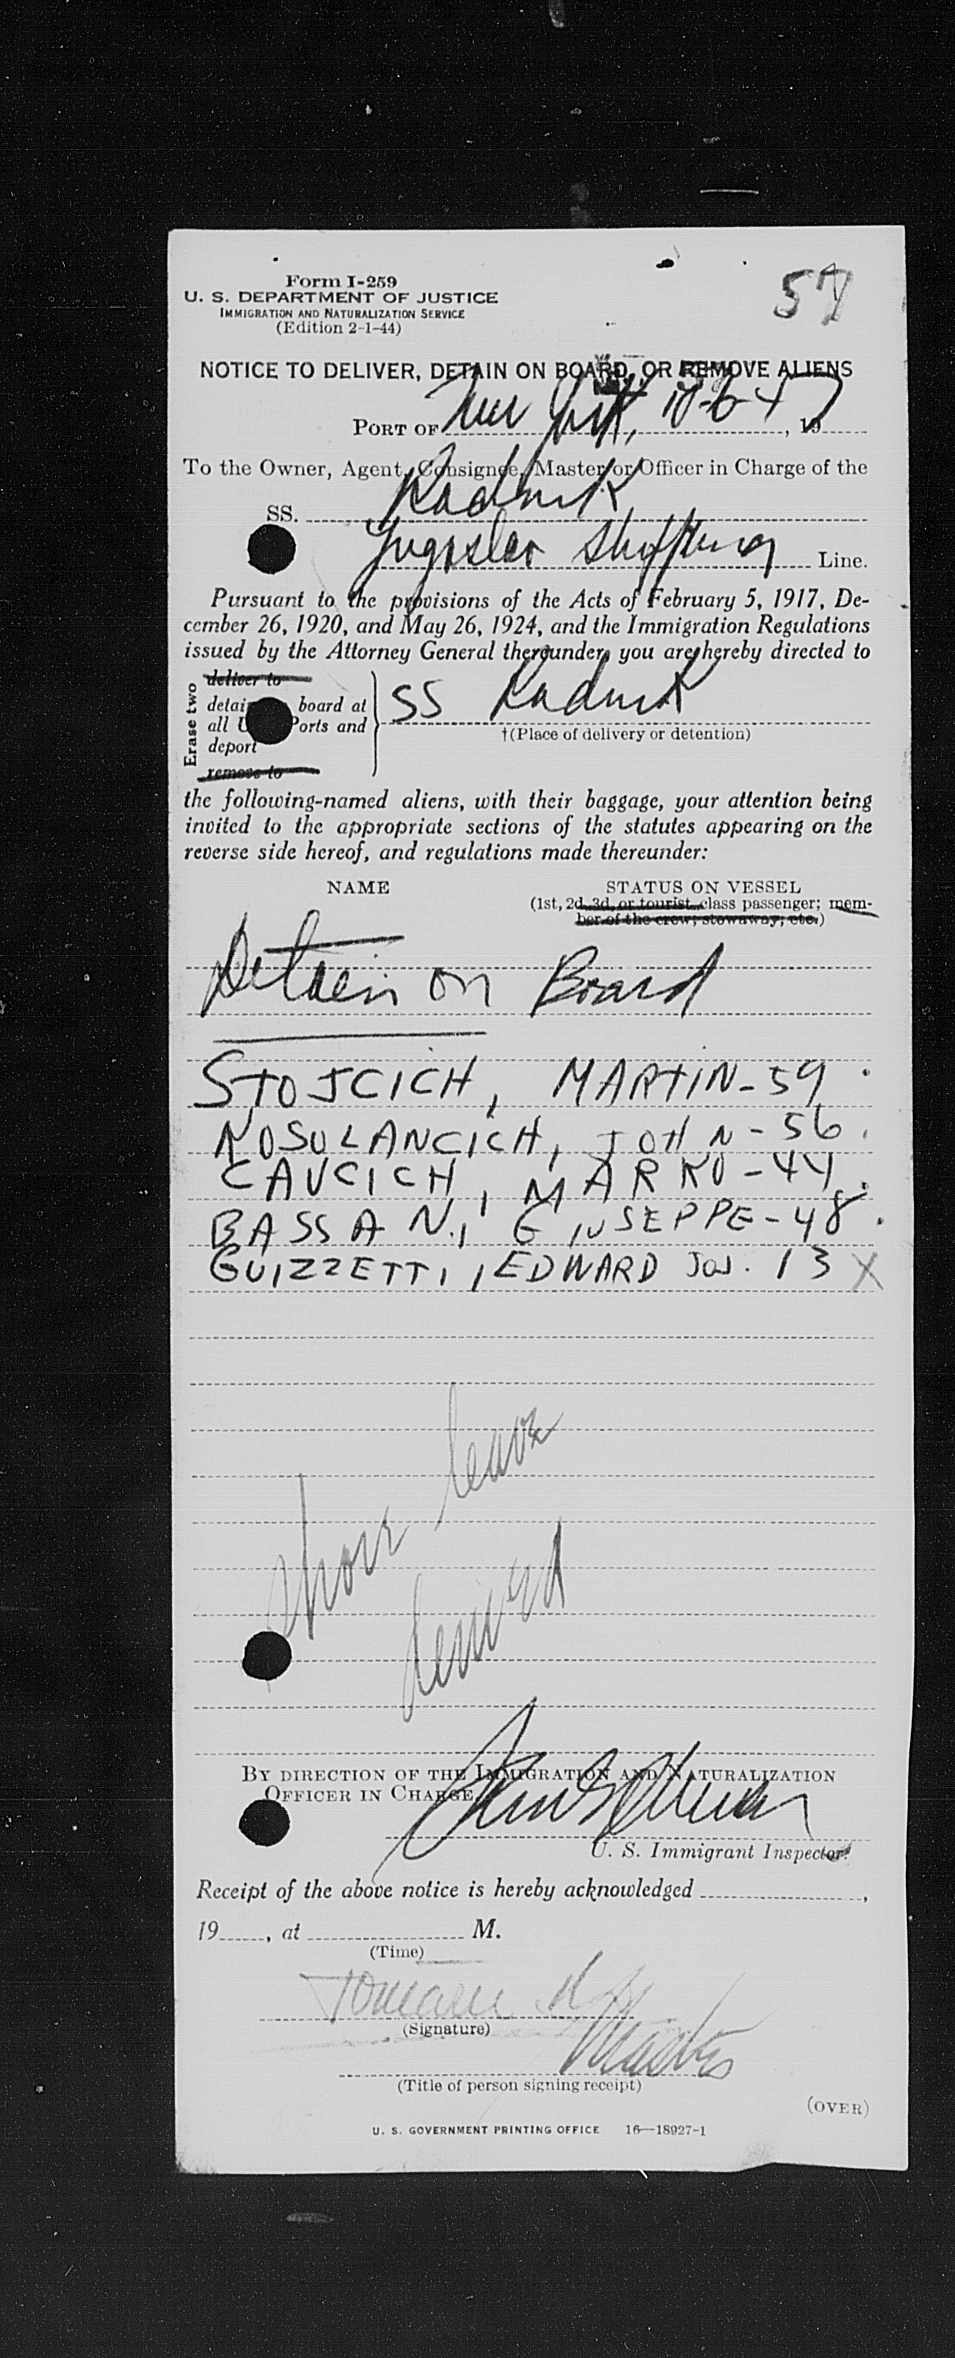 Form I-259
U. S. DEPARTMENT OF JUSTICE
IMMIGRATION AND NATURALIZATION SERVICE
(Edition 2-1-44)
57
NOTICE TO DELIVER, DETAIN ON BOARD, OR REMOVE ALIENS
PORT OF New York, 10-6-47, 19
To the Owner, Agent, Consignee, Master or Officer in Charge of the
SS. Radnik
Yugoslav Shipping Line.
Pursuant to the provisions of the Acts of February 5, 1917, De-
cember 26, 1920, and May 26, 1924, and the Immigration Regulations
issued by the Attorney General thereunder, you are hereby directed to
Erase two
deliver to
detain on board at
all U.S. Ports and
deport
remove to
SS Radnik
†(Place of delivery or detention)
the following-named aliens, with their baggage, your attention being
invited to the appropriate sections of the statutes appearing on the
reverse side hereof, and regulations made thereunder:
NAME STATUS ON VESSEL
(1st, 2d, 3d, or tourist class passenger; mem-
ber of the crew; stowaway; etc.)
Detain on Board
STOJCICH, MARTIN-59
KOSULANCICH, JOHN-56
CAVCICH, MARKO-44
BASSAN, GIUSEPPE-48
GUIZZETTI, EDWARD Jos. 13 X
shore leave
denied
BY DIRECTION OF THE IMMIGRATION AND NATURALIZATION
OFFICER IN CHARGE
U. S. Immigrant Inspector.
Receipt of the above notice is hereby acknowledged ,
19 , at M.
(Time)
(Signature)
Master
(Title of person signing receipt)
(OVER)
U. S. GOVERNMENT PRINTING OFFICE 16—18927-1